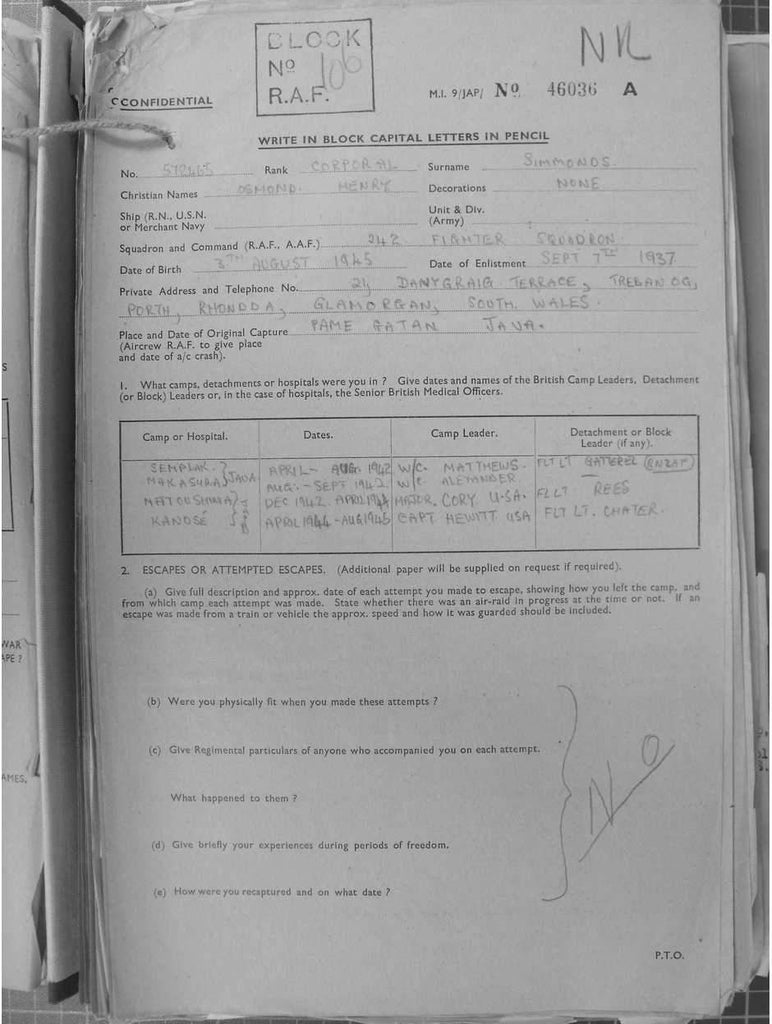 BLOCK
No 106
R.A.F.
NR
CONFIDENTIAL
M.I. 9/JAP/ No. 46036 A
WRITE IN BLOCK CAPITAL LETTERS IN PENCIL
No. 572465 Rank CORPORAL Surname SIMMONDS
Christian Names OSMOND. HENRY Decorations NONE
Ship (R.N., U.S.N. or Merchant Navy
Unit & Div. (Army)
Squadron and Command (R.A.F., A.A.F.) 242 FIGHTER SQUADRON
Date of Birth 3TH AUGUST 1945 Date of Enlistment SEPT 7TH 1937
Private Address and Telephone No. 24 DANYGRAIG TERRACE, TREBANOG,
PORTH, RHONDDA, GLAMORGAN, SOUTH WALES.
Place and Date of Original Capture PAME GATAN JAVA.
(Aircrew R.A.F. to give place
and date of a/c crash).
1. What camps, detachments or hospitals were you in ? Give dates and names of the British Camp Leaders, Detachment
(or Block) Leaders or, in the case of hospitals, the Senior British Medical Officers.
Camp or Hospital. Dates. Camp Leader. Detachment or Block Leader (if any).
SEMPLAK. } JAVA APRIL - AUG. 1942 W/C. MATTHEWS. FLT LT
MAKASURA AUG. - SEPT 1942 W/C. ALEXANDER
DEC 1942. APRIL 1944 MAJOR. CORY U.S.A. FL LT REES
KANOSÉ APRIL 1944 - AUG 1945 CAPT HEWITT USA FLT LT. CHATER.
2. ESCAPES OR ATTEMPTED ESCAPES. (Additional paper will be supplied on request if required).
(a) Give full description and approx. date of each attempt you made to escape, showing how you left the camp, and
from which camp each attempt was made. State whether there was an air-raid in progress at the time or not. If an
escape was made from a train or vehicle the approx. speed and how it was guarded should be included.
(b) Were you physically fit when you made these attempts ?
(c) Give Regimental particulars of anyone who accompanied you on each attempt.
What happened to them ?
(d) Give briefly your experiences during periods of freedom.
(e) How were you recaptured and on what date ?
NO
P.T.O.